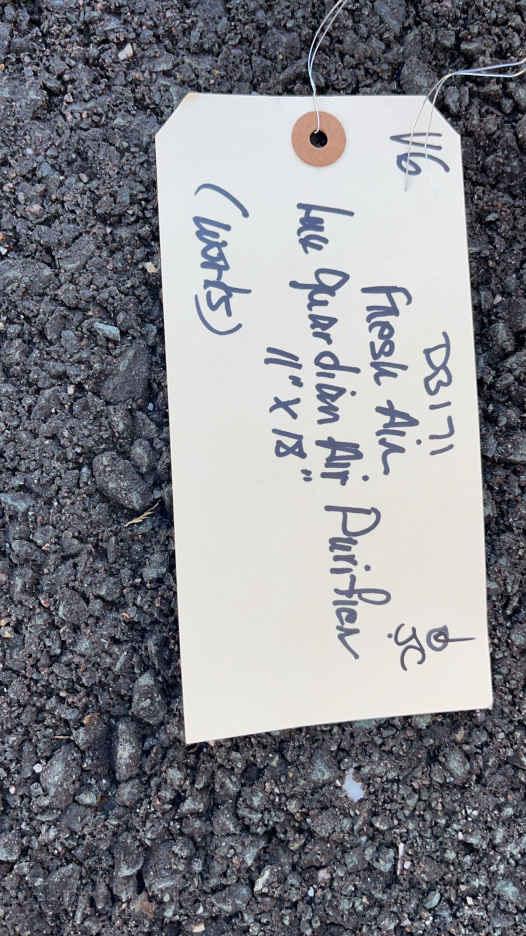 V6
DB171
JC
Fresh Air
Guardian Air Purifier
11" X 18"
(Works)